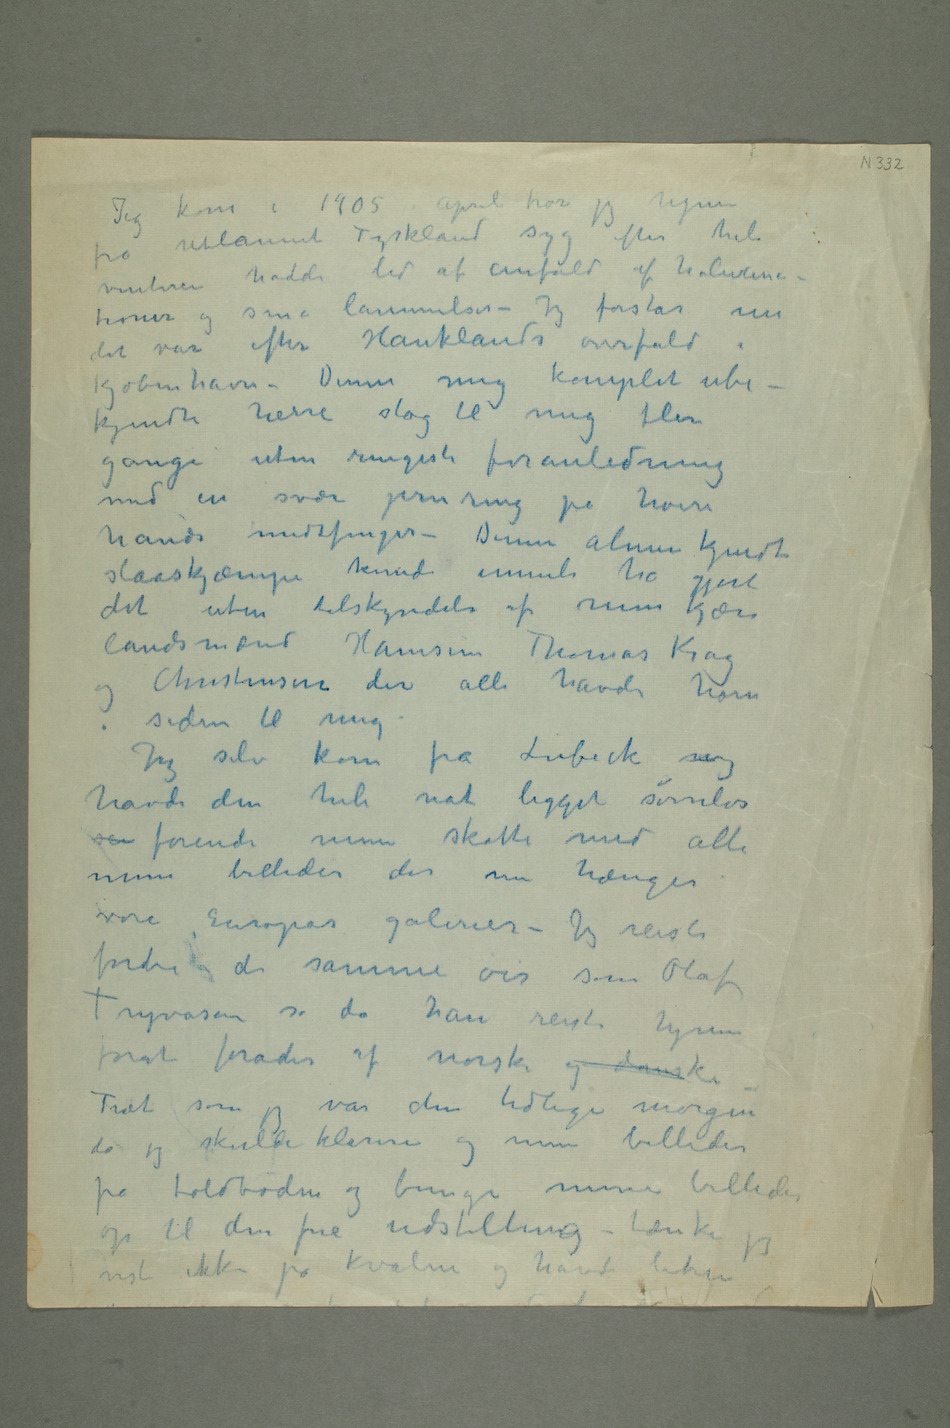 N 332
Jeg kom i 1905 i april tror jeg hjem
fra utlannet Tyskland syg efter hele
vinteren hadde lid af anfald af halucina-
tioner og små lammelser – Jeg forstår nu
det var efter Hauklands overfald i
Kjøbenhavn – Denne mig komplet ube-
kjendte herre slog til mig flere
gange uten ringeste foranledning
med en svær jernring på høire
hånds midtfinger – Denne almen kjendte
slaaskjæmpe kunde umuli ha gjort
det uten tilskyndelse af mine kjære
landsmænd Hamsun Thomas Krag
og Christensen der alle havde horn
i siden til mig.
Jeg selv kom fra Lübeck og
havde den hele nat ligget søvnløs
forende mine skatte med alle
mine billeder der nu hænger i
vore Europas galerier – Jeg reiste
fordre de samme øer som Olaf
Tryvasøn så da han reiste hjem
forat forådes af norske og danske –
Træt som jeg var den tidlige morgen
da jeg skulde klarere og mine billeder
på toldboden og bringe mine billeder
op til den frie udstilling – tænkte jeg
vist ikke på kvalme og havde liden